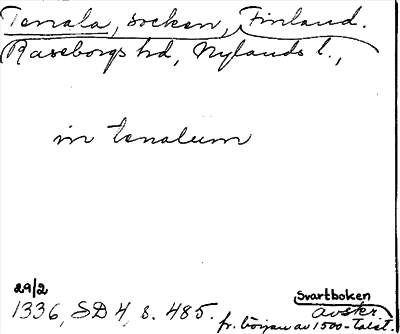 Tenala, socken, Finland.
Raseborgs hd, Nylands l.,
in tenalum
29/2
1336, SD 4, s. 485.
Svartboken
avskr.
fr. början av 1500-talet.